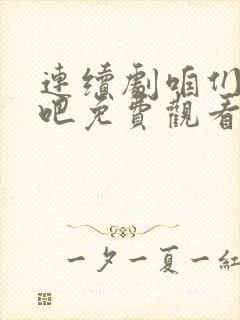 連續劇咱们
吧免費觀看
一夕一夏一紅